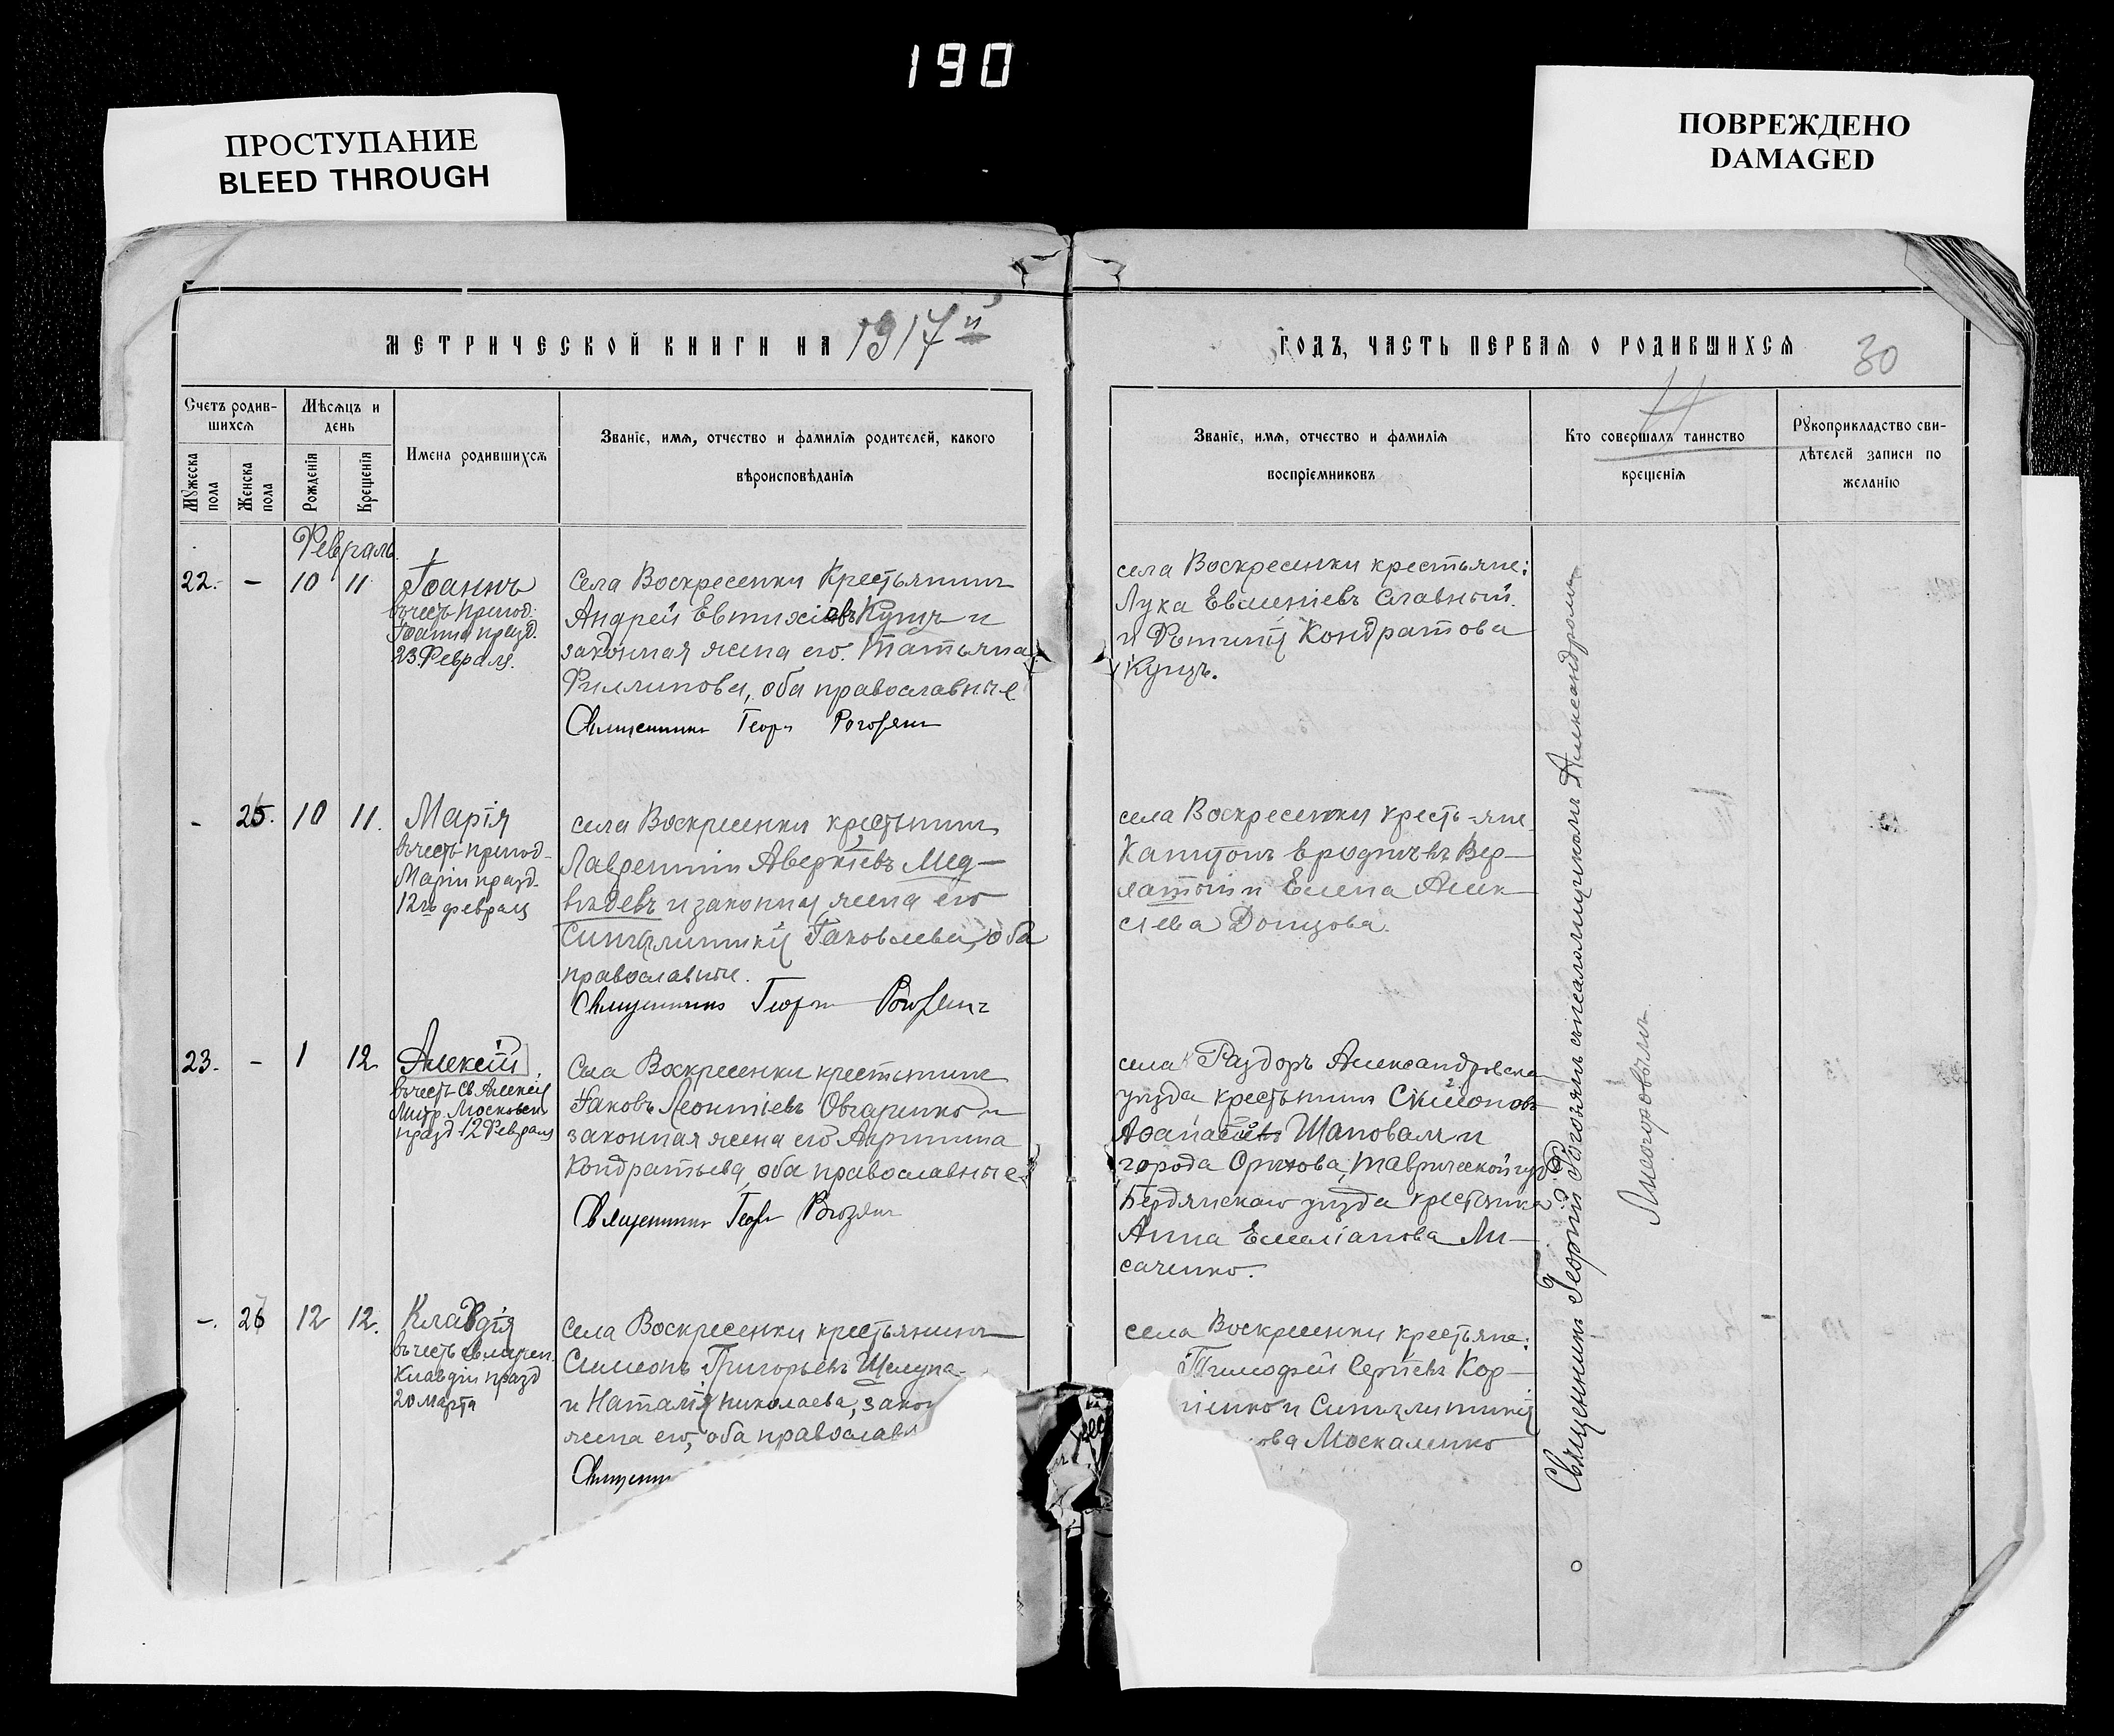 190
ПРОСТУПАНИЕ
BLEED THROUGH
ПОВРЕЖДЕНО
DAMAGED
МЕТРИЧЕСКОЙ КНИГИ НА 1917й
ГОДЪ, ЧАСТЬ ПЕРВАЯ О РОДИВШИХСЯ
30
Счетъ родив-
шихся
Мѣсяцъ и
день
Мужеска
пола
Женска
пола
Рожденія
Крещенія
Имена родившихся
Званіе, имя, отчество и фамилія родителей, какого
вѣроисповѣданія
Званіе, имя, отчество и фамилія
воспріемниковъ
Кто совершалъ таинство
крещенія
Рукоприкладство сви-
дѣтелей записи по
желанію
Февраль
22. - 10 11
Іоаннъ
въ честь препод.
Іоанна празд.
23 Февраля.
Села Воскресенки Крестьянинъ
Андрей Евтихіевъ Куцъ и
законная жена его Татьяна
Филипова, оба православные
Священникъ Георгій Рогозянъ
села Воскресенки крестьяне:
Лука Евменіевъ Славный
и Фотинія Кондратова
Куцъ.
- 25. 10 11.
Марія
въ честь препод.
Маріи празд.
12го февраля
села Воскресенки крестьянинъ
Лаврентій Аверкіевъ Мед-
вѣдевъ и законная жена его
Синклитикія Іаковлева, оба
православные.
Священникъ Георгій Рогозянъ
села Воскресенки кресть-яне
Капитонъ
и Елена Алек
сѣева Донцова.
23. - 1 12
Алексій
въ честь Св. Алексія
Митр. Московск.
празд. 12 Февраля
Села Воскресенки крестьянинъ
Іаковъ Леонтіевъ Овчаренко и
законная жена его Акрипина
Кондратьева, оба православные.
Священникъ Георгій Рогозянъ
села Раздоръ Александровска
уѣзда крестьянинъ Симеонъ
Афанасіевъ Шаповалъ и
города Орѣхова, Таврической губ.
Бердянскаго уѣзда крестьянка
Анна Емеліанова Ли-
саченко.
-. 26 12 12.
Клавдія
въ честь Св. мучен.
Клавдіи празд
20 марта
Села Воскресенки крестьянинъ
Симеонъ Григорьевъ Шелупа-
и Наталія Николаева, закон
жена его, оба православн
Священни
села Воскресенки крестьяне:
Тимофей Сергіевъ Кор-
ніенко и Синклитикія
ова Москаленко
Священникъ Георгій Рогозянъ съ псаломщикомъ Александромъ
Лисогоровымъ